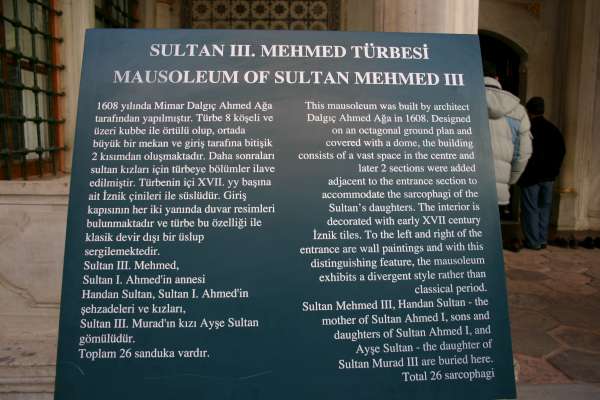 SULTAN III. MEHMED TÜRBESİ
MAUSOLEUM OF SULTAN MEHMED III
1608 yılında Mimar Dalgıç Ahmed Ağa
tarafından yapılmıştır. Türbe 8 köşeli ve
üzeri kubbe ile örtülü olup, ortada
büyük bir mekan ve giriş tarafına bitişik
2 kısımdan oluşmaktadır. Daha sonraları
sultan kızları için türbeye bölümler ilave
edilmiştir. Türbenin içi XVII. yy başına
ait İznik çinileri ile süslüdür. Giriş
kapısının her iki yanında duvar resimleri
bulunmaktadır ve türbe bu özelliği ile
klasik devir dışı bir üslup
sergilemektedir.
Sultan III. Mehmed,
Sultan I. Ahmed'in annesi
Handan Sultan, Sultan I. Ahmed'in
şehzadeleri ve kızları,
Sultan III. Murad'ın kızı Ayşe Sultan
gömülüdür.
Toplam 26 sanduka vardır.
This mausoleum was built by architect
Dalgıç Ahmed Ağa in 1608. Designed
on an octagonal ground plan and
covered with a dome, the building
consists of a vast space in the centre and
later 2 sections were added
adjacent to the entrance section to
accommodate the sarcophagi of the
Sultan's daughters. The interior is
decorated with early XVII century
İznik tiles. To the left and right of the
entrance are wall paintings and with this
distinguishing feature, the mausoleum
exhibits a divergent style rather than
classical period.
Sultan Mehmed III, Handan Sultan - the
mother of Sultan Ahmed I, sons and
daughters of Sultan Ahmed I, and
Ayşe Sultan - the daughter of
Sultan Murad III are buried here.
Total 26 sarcophagi